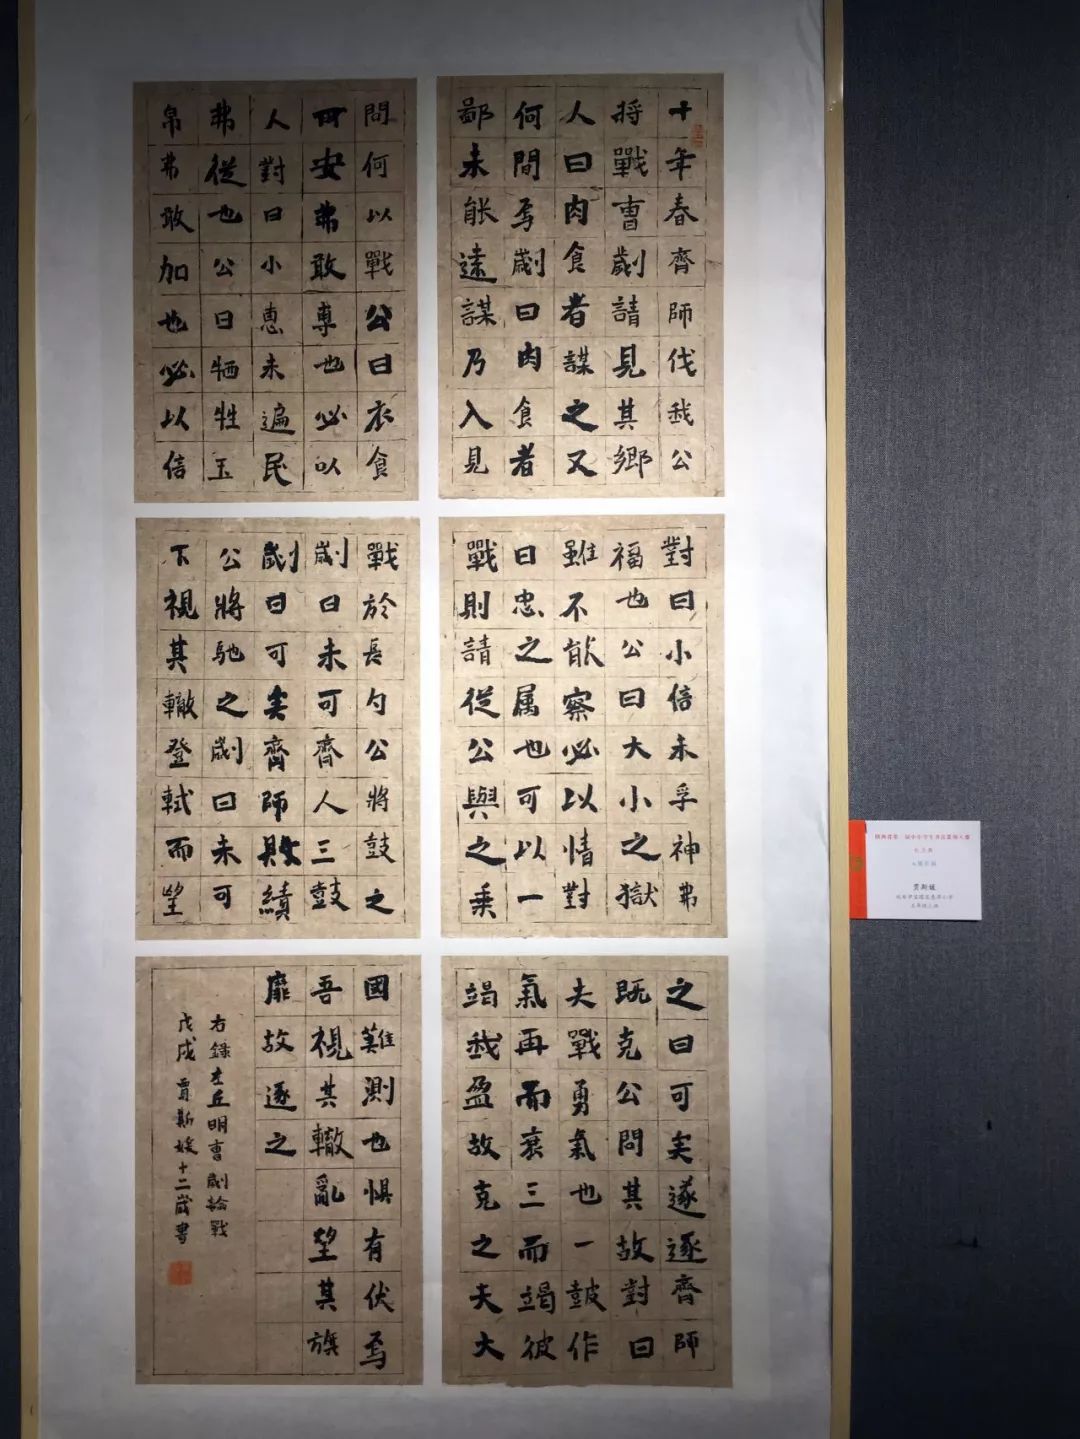 十年春齊師伐我公
将戰曹劌請見其鄉
人曰肉食者謀之又
何間焉劌曰肉食者
鄙未能遠謀乃入見
問何以戰公曰衣食
所安弗敢專也必以
人對曰小惠未遍民
弗從也公曰牺牲玉
帛弗敢加也必以信
對曰小信未孚神弗
福也公曰大小之獄
雖不能察必以情對
曰忠之属也可以一
戰則請從公與之乘
戰於長勺公將鼓之
劌曰未可齊人三鼓
劌曰可矣齊師敗績
公將馳之劌曰未可
下視其轍登軾而望
之曰可矣遂逐齊師
既克公問其故對曰
夫戰勇氣也一鼓作
氣再而衰三而竭彼
竭我盈故克之夫大
國難測也惧有伏焉
吾視其轍亂望其旗
靡故逐之
右錄左丘明曹劌論戰
戊戌賈斯媛十二歲書
贾斯媛